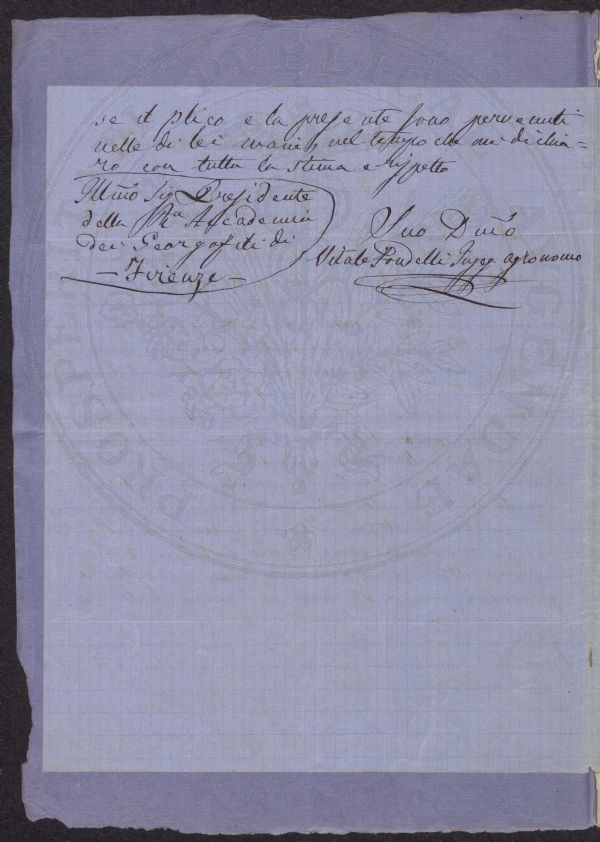 se il plico e la presente sono pervenuti
nelle di lei mani, nel tempo che mi dichia=
ro con tutta la stima e rispetto
Illmo Sig Presidente
della Rle Accademia
dei Georgofili di
— Firenze —
Suo Dmo
Vitale Fondelli Inge. agronomo
PROSPERITATI PUBLICAE AUGENDAE